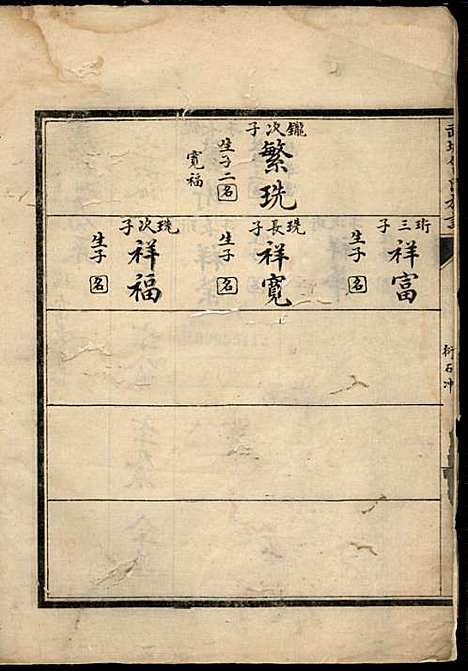 鑨次子
繁珗
生子二名
寬福
珩三子
祥富
生子名
珗長子
祥寬
生子名
珗次子
祥福
生子名
衍石冲